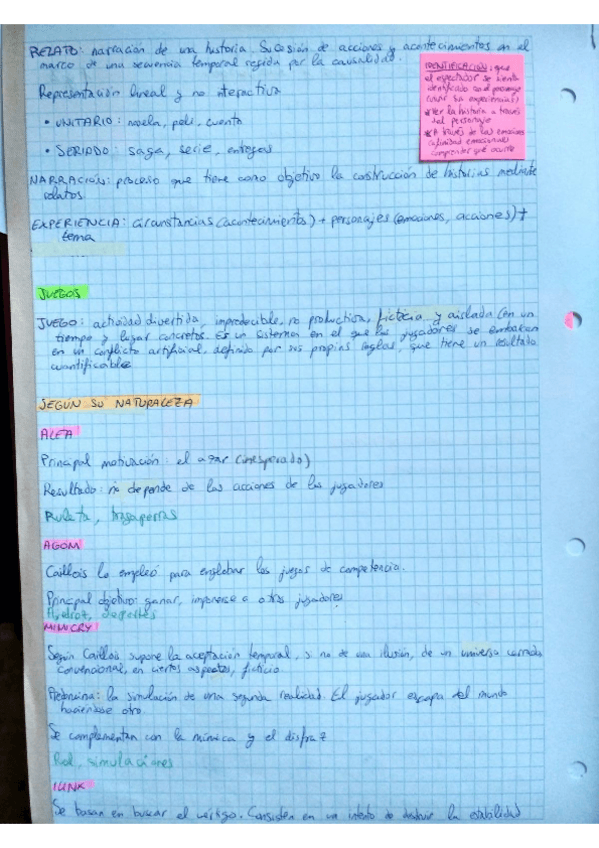 RELATO: narración de una historia. Sucesión de acciones y acontecimientos en el
marco de una secuencia temporal regida por la causalidad.
Representación lineal y no interactiva
• UNITARIO: novela, peli, cuento
• SERIADO: saga, serie, entregas
IDENTIFICACIÓN: que
el espectador se sienta
identificado con el personaje
sus experiencias
*Ver la historia a través
del personaje
*A través de las emociones
afinidad emocional
comprender qué ocurre
NARRACIÓN: proceso que tiene como objetivo la costrucción de historias mediante
relatos
EXPERIENCIA: circunstancias (acontecimientos) + personajes (emociones, acciones) +
tema
JUEGOS
JUEGO: actividad divertida, impredecible, no productiva, ficticia y aislada en un
tiempo y lugar concretos. Es un sistema en el que los jugadores se embarcan
en un conflicto artificial, definido por sus propias reglas, que tiene un resultado
cuantificable
SEGÚN SU NATURALEZA
ALEA
Principal motivación: el azar (inesperado)
Resultado: no depende de las acciones de los jugadores
Ruleta, tragaperras
AGOM
Caillois lo empleó para englobar los juegos de competencia.
Principal objetivo: ganar, imponerse a otros jugadores
Ajedrez, deportes
MIMICRY
Según Caillois supone la aceptación temporal, si no de una ilusión, de un universo cerrado
convencional, en ciertos aspectos, ficticio.
la simulación de una segunda realidad. El jugador escapa del mundo
haciéndose otro.
Se complementan con la mímica y el disfraz
Rol, simulaciones
Se basan en buscar el vértigo. Consisten en un intento de destruir la estabilidad